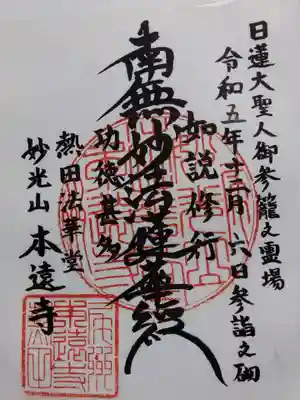 日蓮大聖人御参籠之霊場
令和五年十二月六日参詣之砌
如説修行
南無妙法蓮華経
功徳甚多
熱田法華堂
妙光山 本遠寺